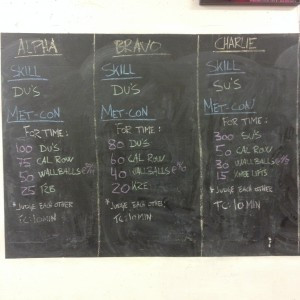 ALPHA
SKILL
DU'S
MET-CON
FOR TIME:
100 DU'S
75 CAL ROW
50 WALLBALLS
25
*JUDGE EACH OTHER
TC: 10 MIN
BRAVO
SKILL
DU'S
MET-CON
FOR TIME:
80 DU'S
60 CAL ROW
40 WALLBALLS
20 K2E
*JUDGE EACH OTHER
TC: 10 MIN
CHARLIE
SKILL
SU'S
MET-CON
FOR TIME:
300 SU'S
50 CAL ROW
30 WALLBALLS
15 KNEE LIFTS
*JUDGE EACH OTHER
TC: 10 MIN